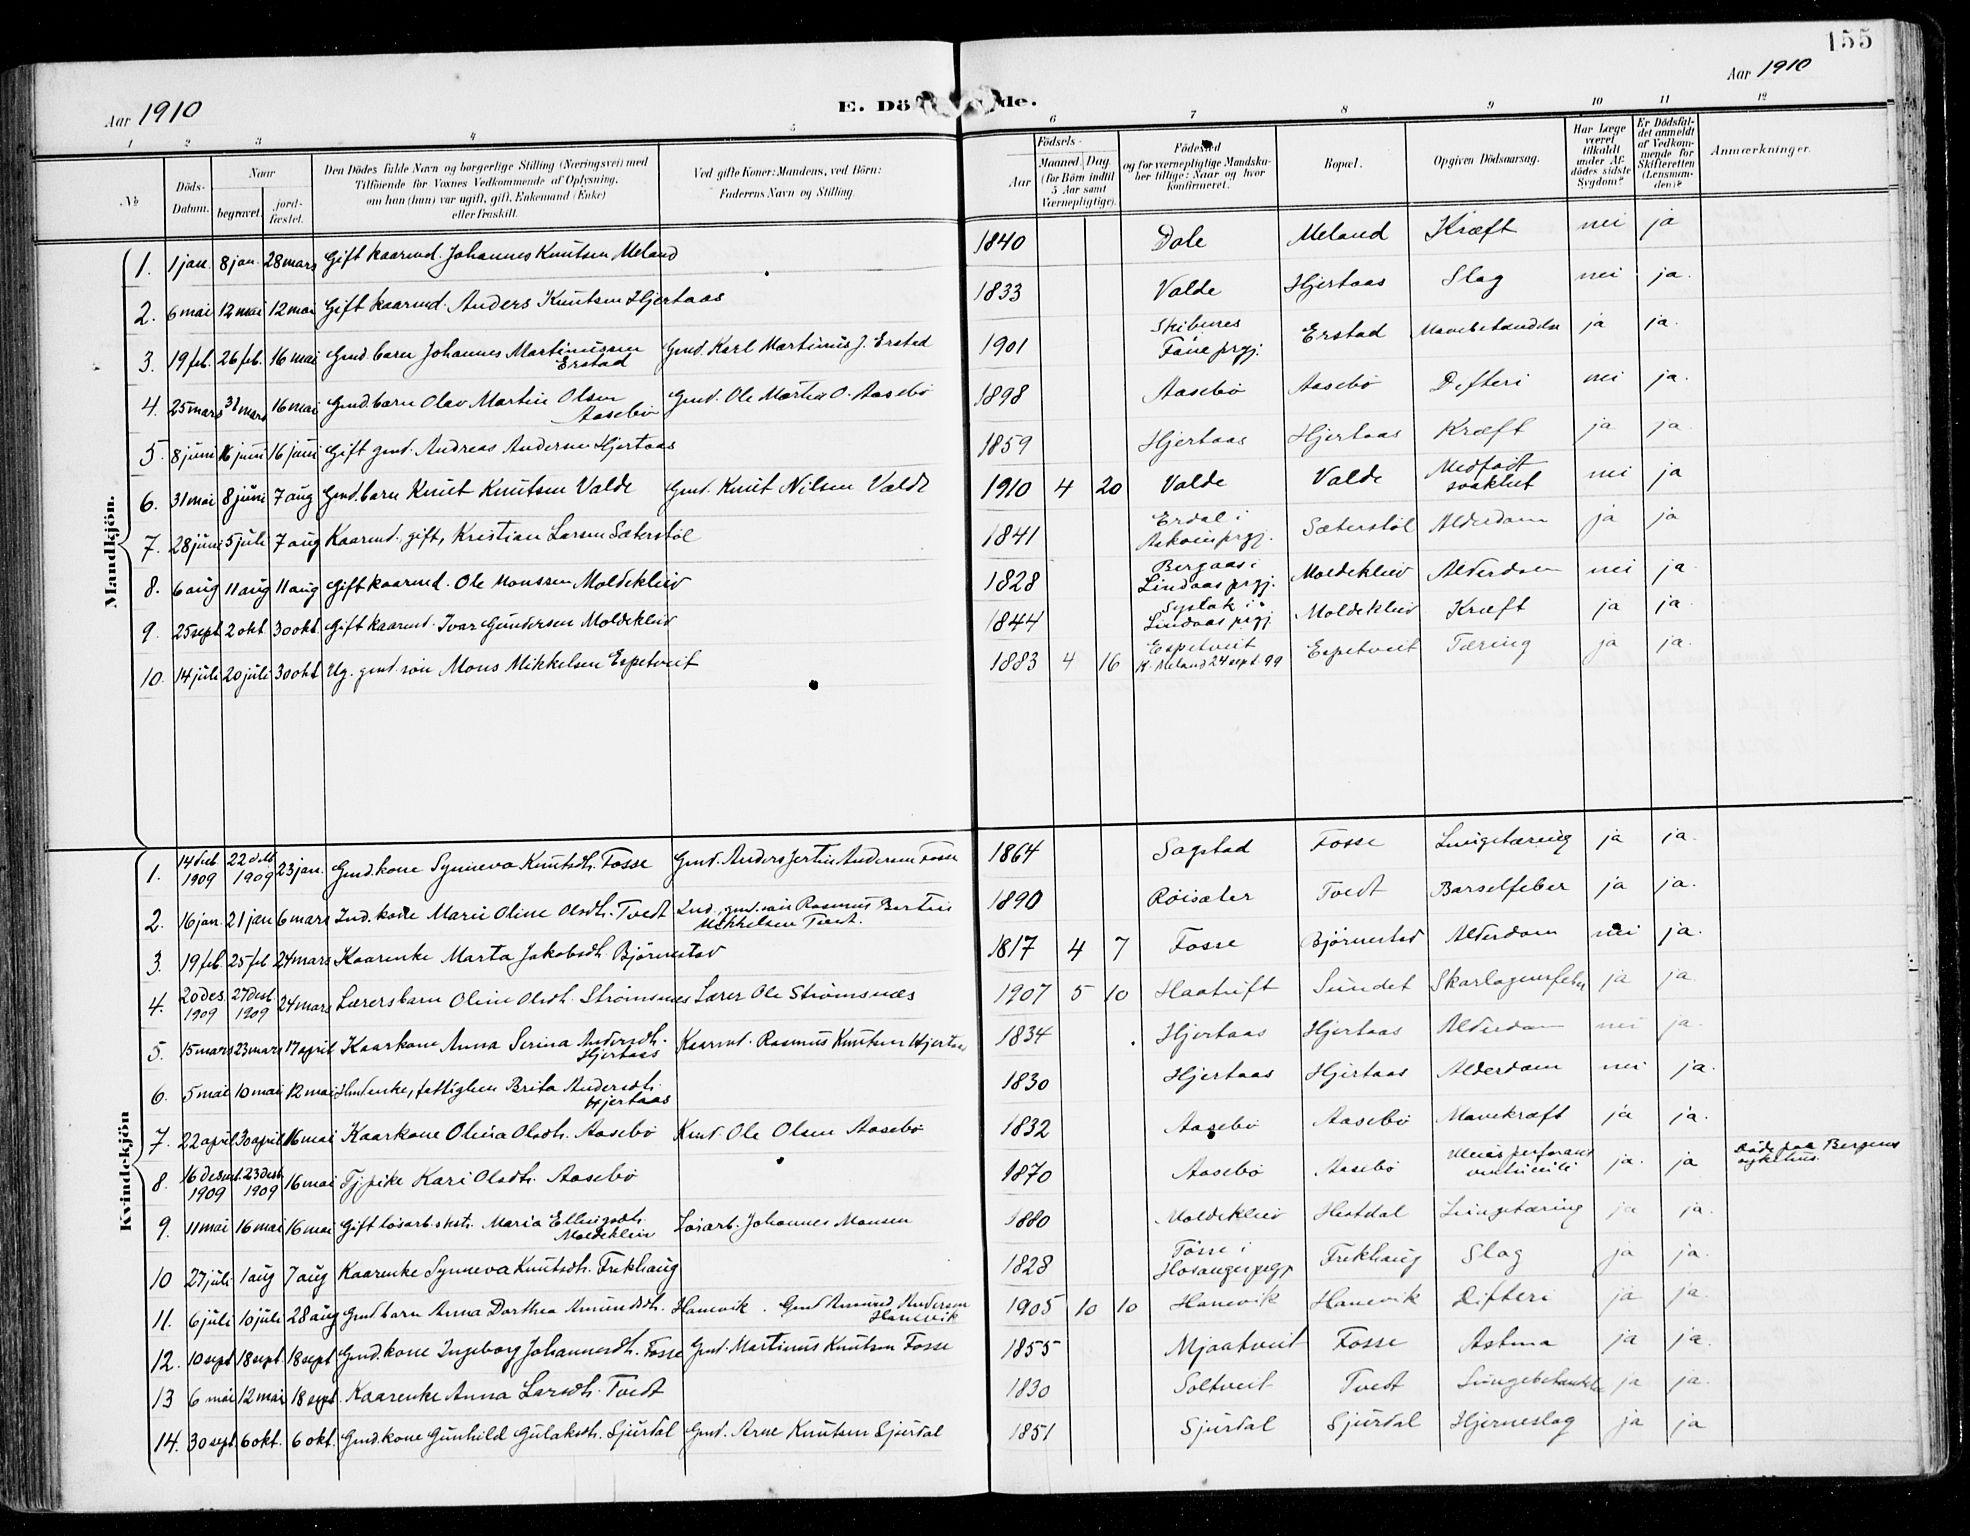 155
Aar 1910
E. Dö de.
Aar 1910
1 2 3 4 5 6 7 8 9 10 11 12
No
Döds-Datum.
Naar
begravet.
jord-fæstet.
Den Dödes fulde Navn og borgerlige Stilling (Næringsvei) med
Tilföiende for Voxnes Vedkommende af Oplysning,
om han (hun) var ugift, gift, Enkemand (Enke)
eller fraskilt.
Ved gifte Koner: Mandens, ved Börn:
Faderens Navn og Stilling.
Födsels-
Aar
Maaned. Dag.
(for Börn indtil
5 Aar samt
Værnepligtige).
Födested
og for værnepligtige Mandska-
ber tillige: Naar og hvor
konfirmeret.
Bopæl.
Opgiven Dödsaarsag.
Har Læge
været
tilkaldt
under Af-
dödes sidste
Sygdom?
Er Dödsfal-
det anmeldt
af Vedkom-
mende for
Skifteretten
(Lensman-
den)?
Anmærkninger.
Mandkjön.
1. 1 jan. 8 jan. 28 mars Gift kaarmd. Johannes Knutsen Meland 1840 Dale Meland Kræft nei ja
2. 6 mai 12 mai 12 mai Gift kaarmd. Anders Knutsen Hjertaas 1833 Valde Hjertaas Slag nei ja.
3. 19 feb. 26 feb. 16 mai Gmd. barn Johannes Martinussen Erstad Gmd. Karl Martinus J. Erstad 1901 Skibenes Fane prgj. Erstad ja ja.
4. 25 mars 31 mars 16 mai Gmd. barn Olav Martin Olsen Aasebø Gmd. Ole Martin O. Aasebø 1898 Aasebø Aasebø Difteri nei ja.
5. 8 juni 16 juni 16 juni Gift gmd. Andreas Andersen Hjertaas 1859 Hjertaas Hjertaas Kræft ja ja.
6. 31 mai 8 juni 7 aug Gmd. barn Knut Knutsen Valde Gmd. Knut Nilsen Valde 1910 4 20 Valde Valde Medfødt svakhet nei ja
7. 28 juni 5 juli 7 aug Kaarmd. gift, Kristian Larsen Sæterstøl 1841 Erdal i Askøin prgj. Sæterstøl Alderdom ja ja
8. 6 aug 11 aug 11 aug Gift kaarmd. Ole Monssen Moldekleiv 1828 Bergaas i Lindaas prgj. Moldekleiv Alderdom nei ja.
9. 25 sept 2 okt. 30 okt. Gift kaarmd. Ivar Gundersen Moldekleiv 1844 i Lindaas prgj. Moldekleiv Kræft ja ja.
10. 14 juli 20 juli 30 okt Ug. gmd. søn Mons Mikkelsen Espetveit 1883 4 16 Espetveit K. Meland 24 sept. 99 Espetveit Tæring ja ja.
Kvindekjön
1. 14 des 1909 22 des 1909 23 jan. Gmd. kone Synneva Knutsdh. Fosse Gmd. Anders Jertin Andersen Fosse 1864 Sagstad Fosse Lungetæring ja ja.
2. 16 jan. 21 jan 6 mars Ind. kone Marie Oline Olsdh. Tvedt Ind., gmd. søn Rasmus Bertin Mikkelsen Tvedt. 1890 Røisæter Tvedt Barselfeber ja ja.
3. 19 feb. 25 feb 24 mars Kaarenke Marta Jakobsdh. Bjørnestad 1817 4 7 Fosse Bjørnestad Alderdom nei ja.
4. 20 des. 1909 27 des 1909 24 mars Lærersbarn Oline Olsdh. Strømsnæs Lærer Ole Strømsnæs 1907 5 10 Haatuft Sundet Skarlagensfeber ja ja
5. 15 mars 23 mars 17 april Kaarkone Anna Serina Andersdh. Hjertaas Kaarmd. Rasmus Knutsen Hjertaas 1834 Hjertaas Hjertaas Alderdom nei ja.
6. 5 mai 10 mai 12 mai Hmdenke, fattiglem Brita Andersdh. Hjertaas 1830 Hjertaas Hjertaas Alderdom nei ja.
7. 22 april 30 april 16 mai Kaarkone Olina Olsdh. Aasebø Kmd. Ole Olsen Aasebø 1832 Aasebø Aasebø Mavekræft ja ja.
8. 16 desemb. 1909 23 desb. 1909 16 mai Tj. pike Kari Olsdh. Aasebø 1870 Aasebø Aasebø Ulcus perforans ventriculi ja. ja Døde paa Bergens sykehus.
9. 11 mai 16 mai 16 mai Gift løsarb.sksk. Maria Ellingsdh. Moldekleiv Løsarb. Johannes Monsen 1880 Moldekleiv Hestdal Lungetæring ja ja.
10 27 juli 1 aug 7 aug Kaarenke Synneva Knutsdh. Frekhaug 1828 Tøsse i Hosanger prgj. Frekhaug Slag ja ja.
11. 6 juli 10 juli 28 aug Gmd barn Anna Dorthea Amundsdh. Hanevik. Gmd Amund Andersen Hanevik 1905 10 10 Hanevik Hanevik Difteri ja ja.
12. 10 sept 18 sept. 18 sept Gmd. kone Ingeborg Johannesdh. Fosse Gmd. Martinus Knutsen Fosse 1855 Mjaatveit Fosse Astma ja ja.
13 6 mai 12 mai 18 sept. Kaarenke Anna Larsdh. Tvedt 1830 Soltveit Tvedt Lungebetændelse ja ja.
14. 30 sept. 6 okt. 6 okt. Gmd. kone Gunhild Gulaksdh. Sjurdal Gmd. Arne Knutsen Sjurdal 1851 Sjurdal Sjurdal Hjerneslag ja ja